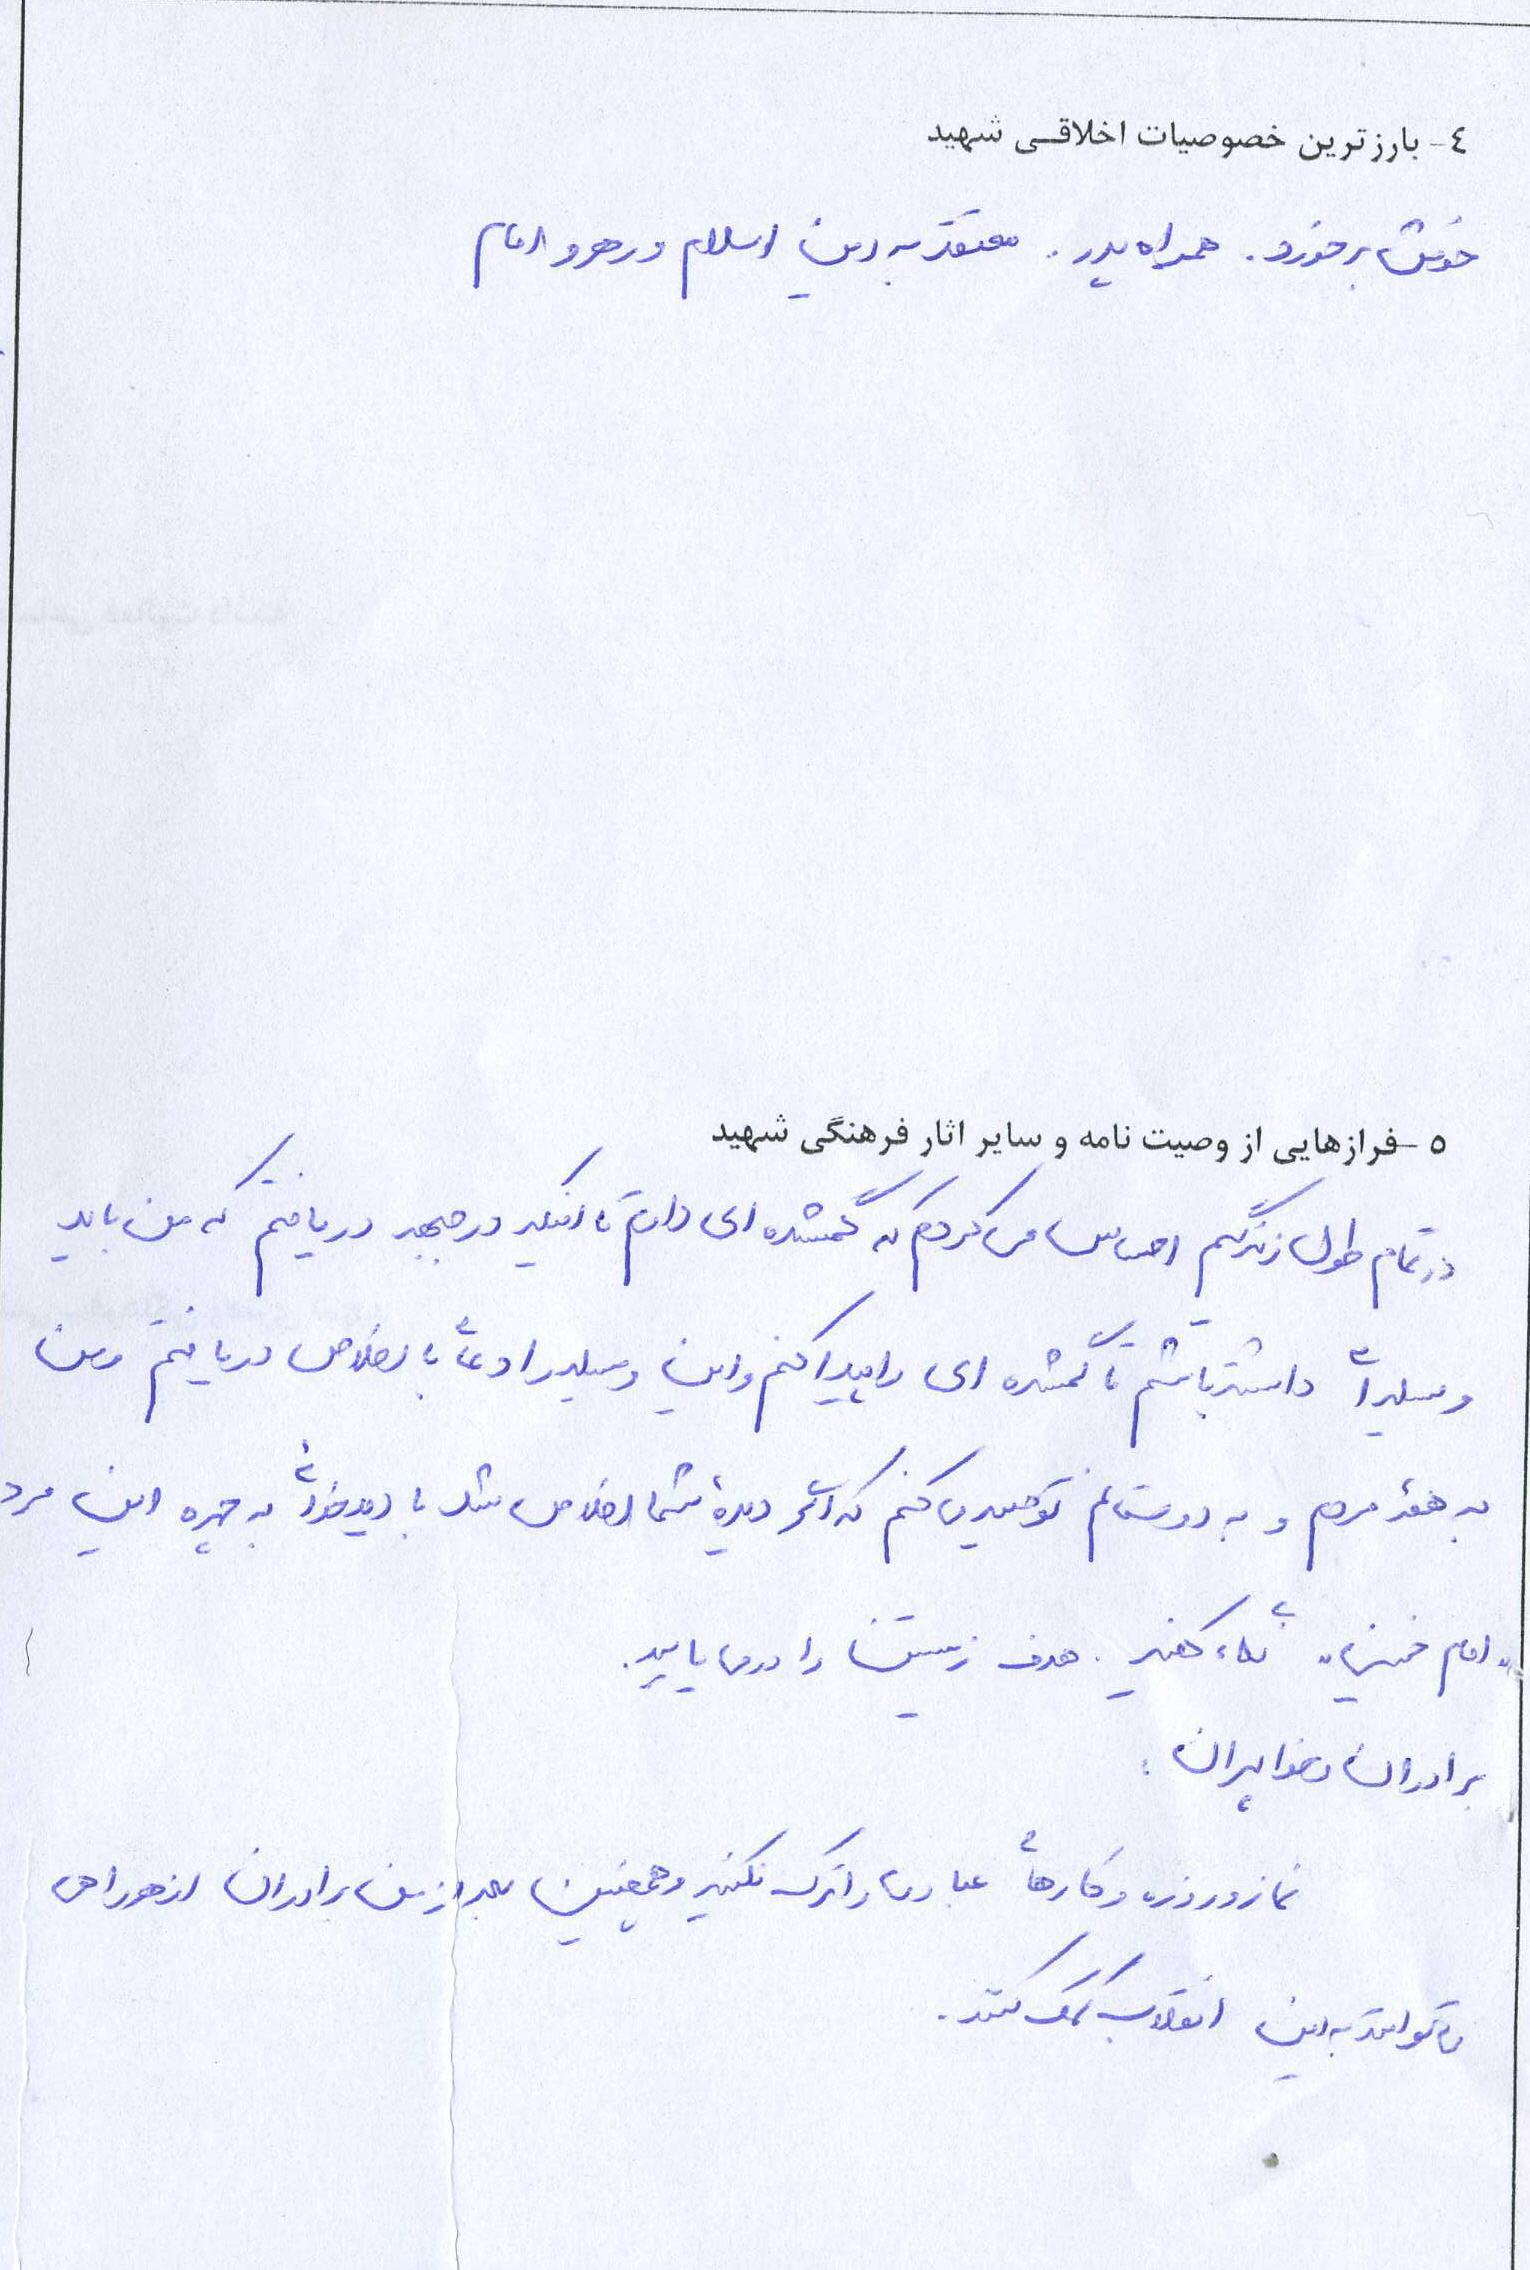 ٤- بارزترین خصوصیات اخلاقی شهید
خوش برخورد. همراه پدر. معتقد به دین اسلام و رهرو امام
٥-فرازهایی از وصیت نامه و سایر اثار فرهنگی شهید
در تمام طول زندگیم احساس می کردم که گمشده ای دارم تا اینکه در جبهه دریافتم که من باید
وسیله ای داشته باشم تا گمشده ای را پیدا کنم و این وسیله را دعای با اخلاص دریافتم و من
به همه مردم و به دوستانم توصیه می کنم که اگر دیده شما اخلاص شد با دید خدایی به چهره این مرد
"امام خمینی" نگاه کنید. هدف زیستن را در می یابید.
برادران و خواهران:
نماز و روزه و کارهای عبادی را ترک نکنید و همچنین بعد از من برادران از هر راهی
می توانند به این انقلاب کمک کنند.